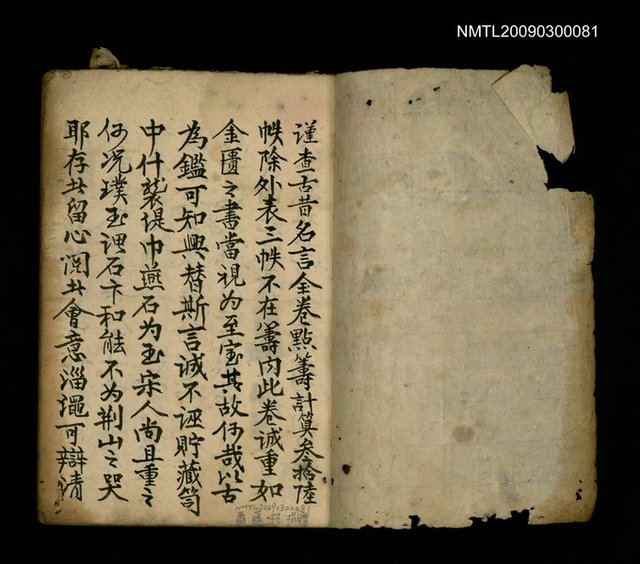 NMTL20090300081
謹查古昔名言全卷點籌計算叁拾陸
帙除外表三帙不在籌內此卷誠重如
金匱之書當視為至宝其故何哉以古
為鑑可知興替斯言誠不誣貯藏笥
中什襲偍巾燕石為玉宋人尚且重之
何况璞玉謂石卞和能不為荆山之哭
耶存此留心閱此會意淄澠可辯清
NMTL20090300081